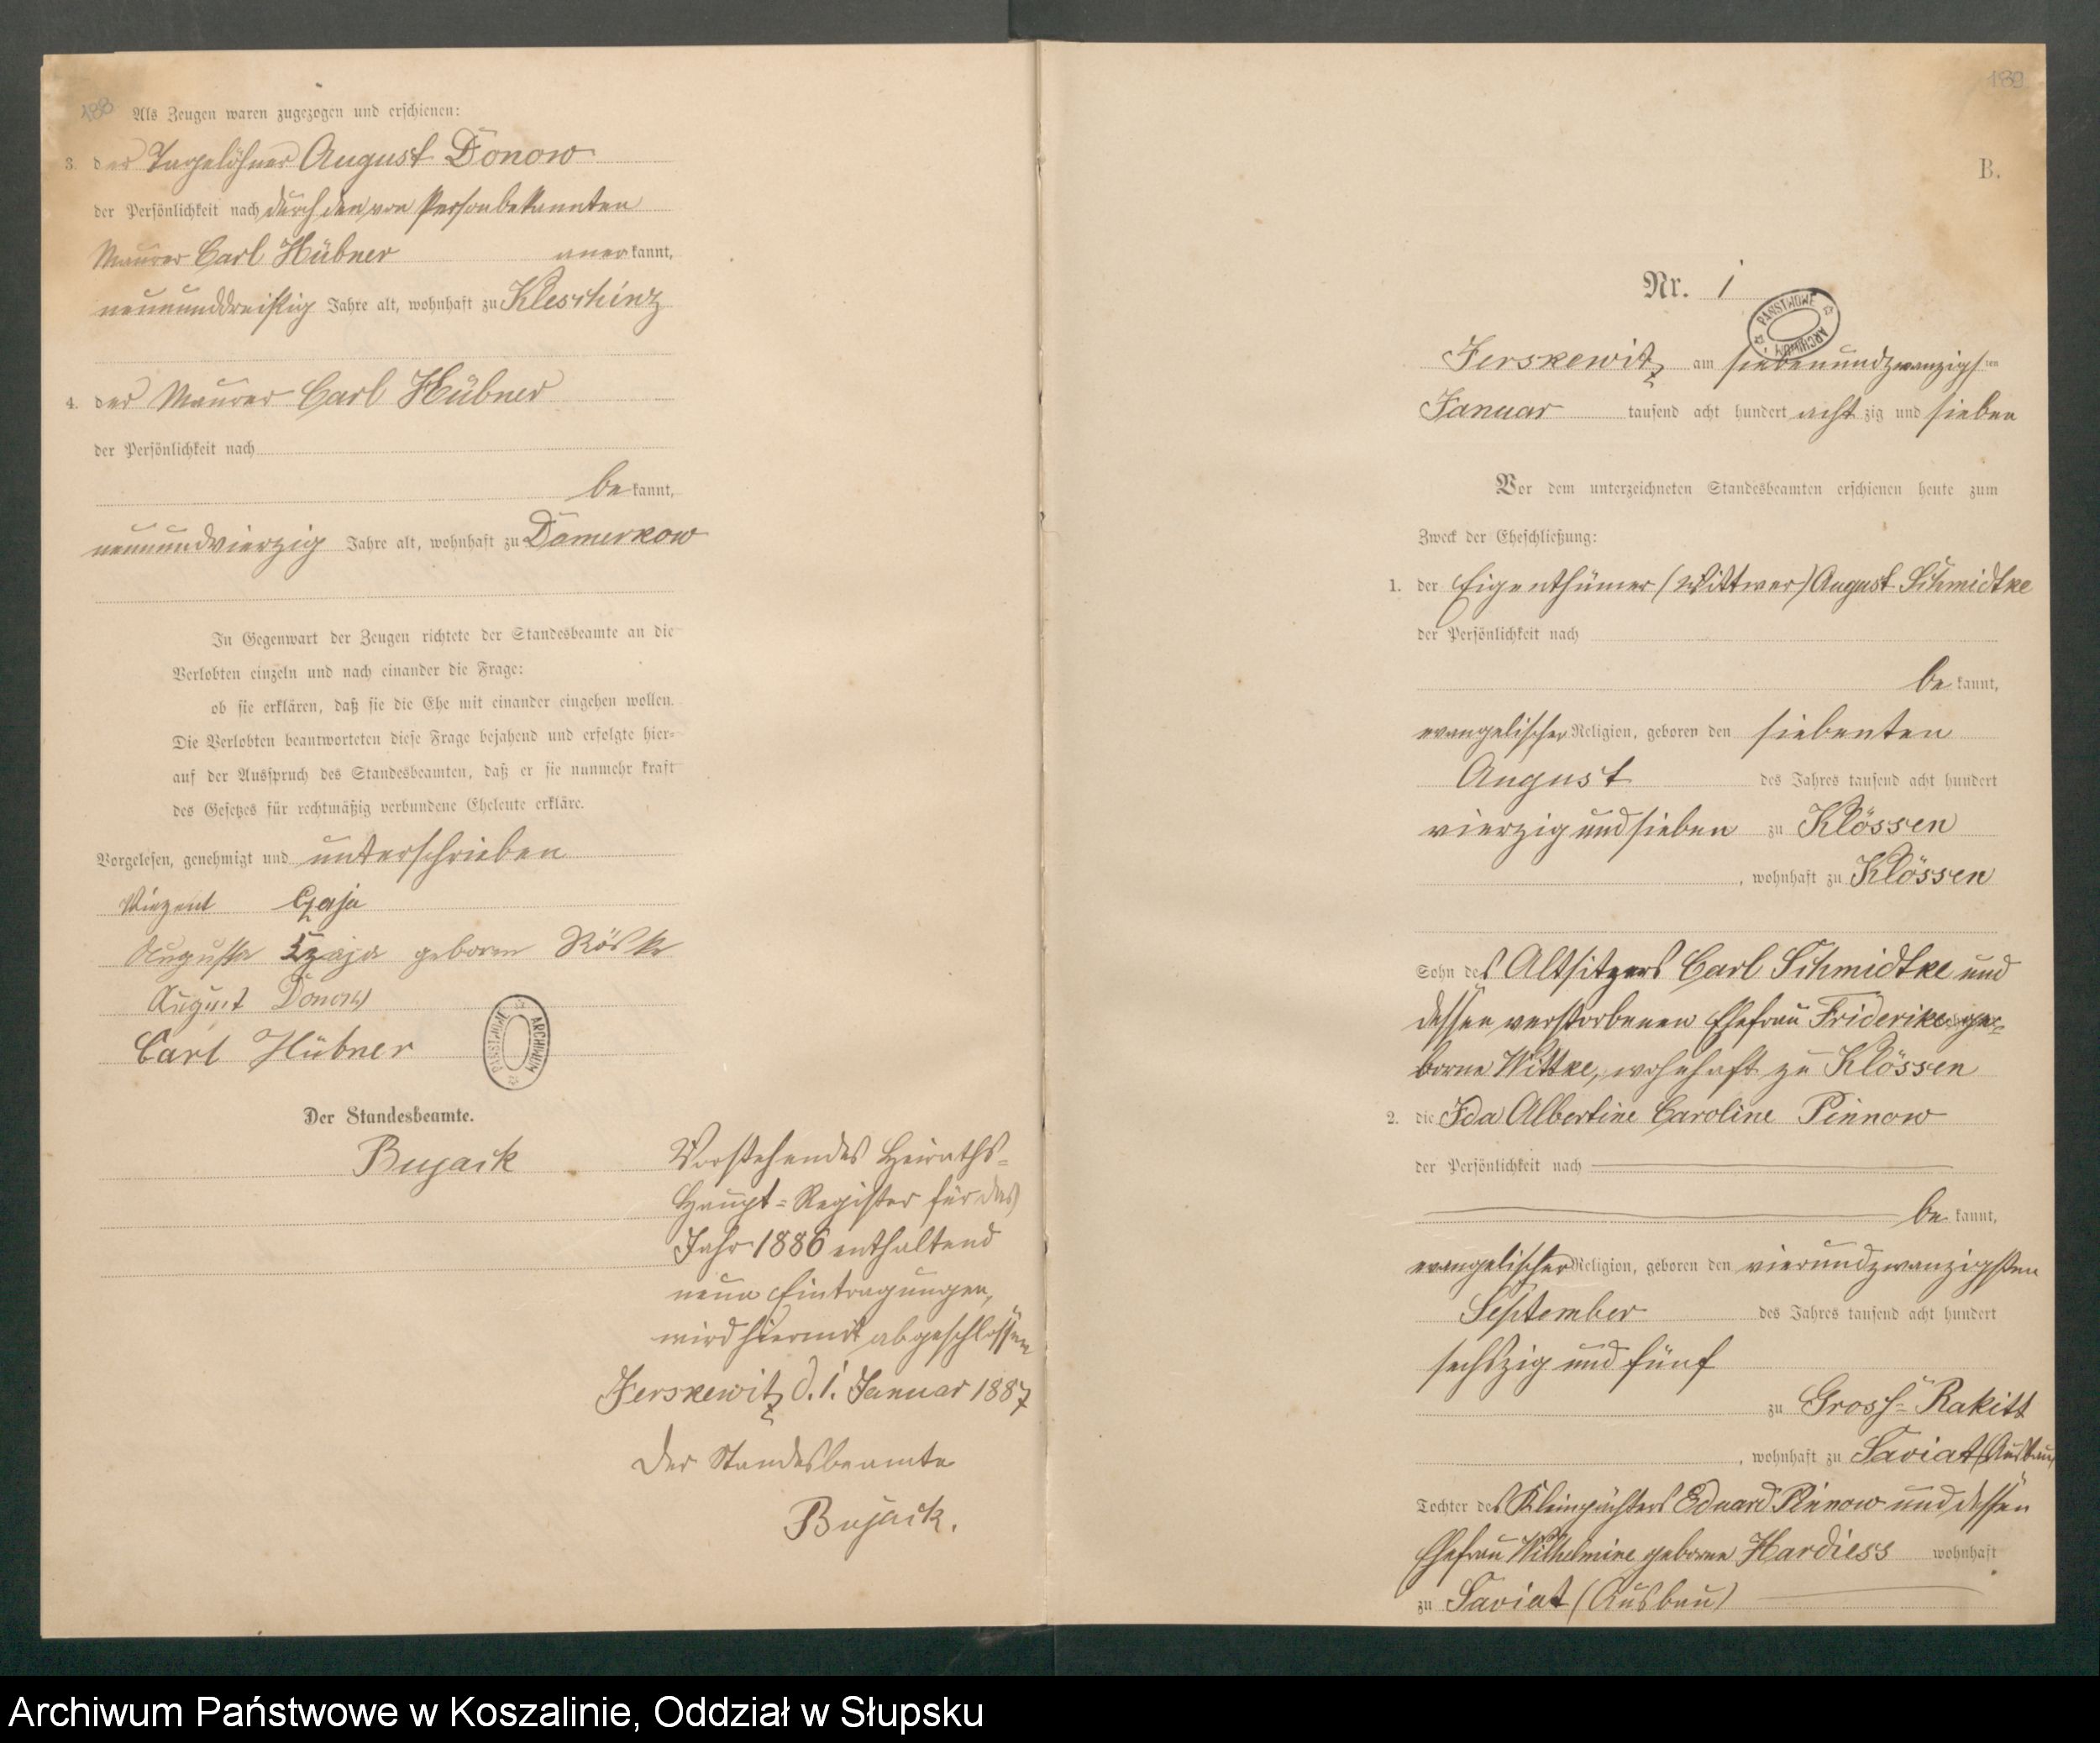 188
Als Zeugen waren zugezogen und erschienen:
3. der Tagelöhner August Donow
der Persönlichkeit nach durch den von Person bekannten
Maurer Carl Hübner anerkannt,
neununddreißig Jahre alt, wohnhaft zu Kleschinz
4. der Maurer Carl Hübner
der Persönlichkeit nach
bekannt,
neunundvierzig Jahre alt, wohnhaft zu Damerkow
In Gegenwart der Zeugen richtete der Standesbeamte an die
Verlobten einzeln und nach einander die Frage:
ob sie erklären, daß sie die Ehe mit einander eingehen wollen.
Die Verlobten beantworteten diese Frage bejahend und erfolgte hier-
auf der Ausspruch des Standesbeamten, daß er sie nunmehr kraft
des Gesetzes für rechtmäßig verbundene Eheleute erkläre.
Vorgelesen, genehmigt und unterschrieben
Vinzent Czaja
Augusta Czaja geboren Röske
August Donow
Carl Hübner
PAŃSTWOWE ARCHIWUM
Der Standesbeamte.
Bujack
Vorstehendes Heiraths-
Haupt-Register für das
Jahr 1886 enthaltend
neun Eintragungen,
wird hiermit abgeschlossen
Jerskewitz d. 1. Januar 1887
Der Standesbeamte
Bujack.
189
B.
Nr. 1
PAŃSTWOWE ARCHIWUM
Jerskewitz am siebenundzwanzigsten
Januar tausend acht hundert achtzig und sieben
Vor dem unterzeichneten Standesbeamten erschienen heute zum
Zweck der Eheschließung:
1. der Eigenthümer (Wittwer) August Schmidtke
der Persönlichkeit nach
bekannt,
evangelischer Religion, geboren den siebenten
August des Jahres tausend acht hundert
vierzig und sieben zu Klössen
, wohnhaft zu Klössen
Sohn des Altsitzers Carl Schmidtke und
dessen verstorbenen Ehefrau Friderike ge-
borne Wittke, wohnhaft zu Klössen
2. die Ida Albertine Caroline Pinnow
der Persönlichkeit nach
bekannt,
evangelischer Religion, geboren den vierundzwanzigsten
September des Jahres tausend acht hundert
sechszig und fünf
zu Gross-Rakitt
, wohnhaft zu Saviat (Ausbau)
Tochter des Kleinpächters Eduard Pinnow und dessen
Ehefrau Wilhelmine geborne Hardiess wohnhaft
zu Saviat (Ausbau)
Archiwum Państwowe w Koszalinie, Oddział w Słupsku